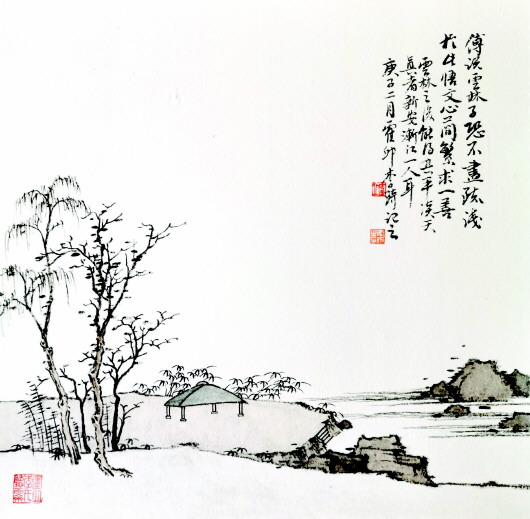 傳說雲林子恐不盡疏淺
於此悟文心簡繁求一善
雲林之後能得其平淡天
真者新安漸江一人耳
庚子二月霍邱李記之